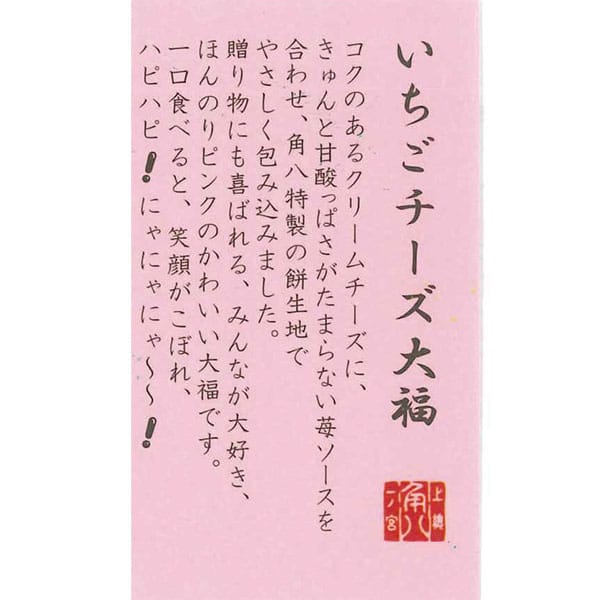 いちごチーズ大福
コクのあるクリームチーズに、
きゅんと甘酸っぱさがたまらない苺ソースを
合わせ、角八特製の餅生地で
やさしく包み込みました。
贈り物にも喜ばれる、みんなが大好き、
ほんのりピンクのかわいい大福です。
一口食べると、笑顔がこぼれ、
ハピハピ！にゃにゃにゃ〜〜！
上總
角八
一ノ宮